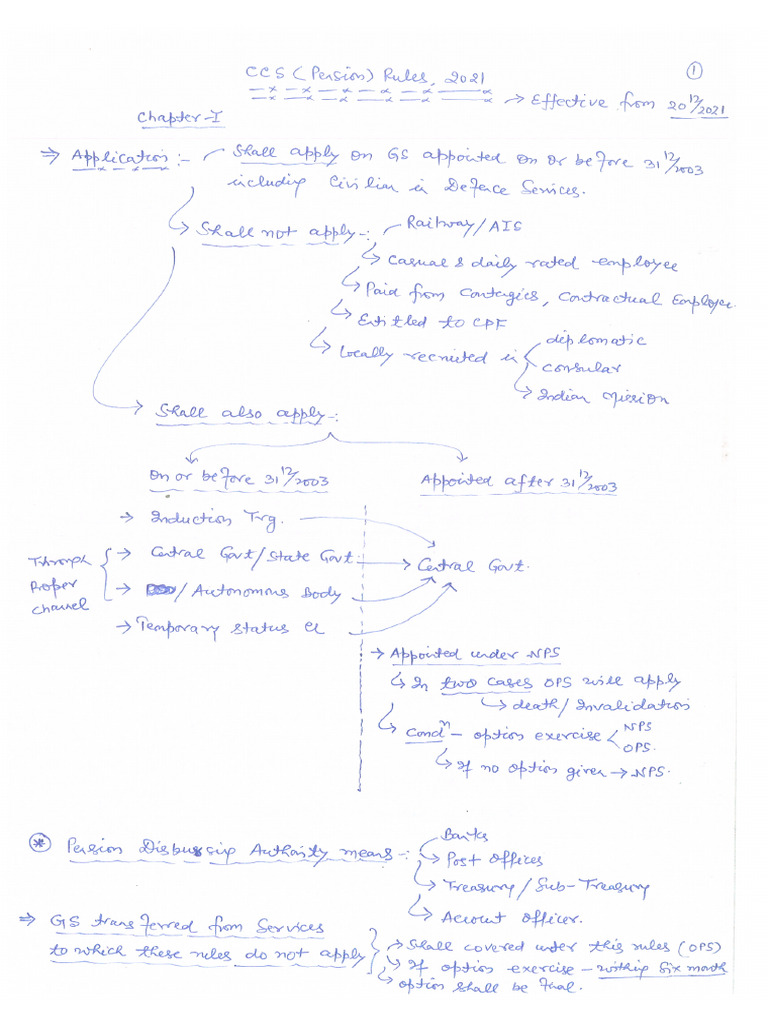 1
CCS (Pension) Rules, 2021
→ Effective from 20 12/2021
Chapter-I
⇒ Application :- Shall apply on GS appointed on or before 31 12/2003
including Civilian in Defence Services.
Shall not apply -: Railway / AIS
Casual & daily rated employee
Paid from Contegies, Contractual Employee
Entitled to CPF
Locally recruited in diplomatic
consular
Indian Mission
Shall also apply -:
on or before 31 12/2003
Appointed after 31 12/2003
→ Induction Trg.
Through Proper Channel
→ Central Govt / State Govt.
→ Central Govt.
→ / Autonomous Body
→ Temporary Status CL
→ Appointed under NPS
In two cases OPS will apply
death / Invalidation
Condn – option exercise NPS
OPS.
If no option given → NPS.
* Pension Disbursing Authority means -: Banks
Post offices
Treasury / Sub-Treasury
Account officer.
⇒ GS transferred from Services
to which these rules do not apply
→ Shall covered under this rules (OPS)
→ If option exercise – within six month
option shall be final.